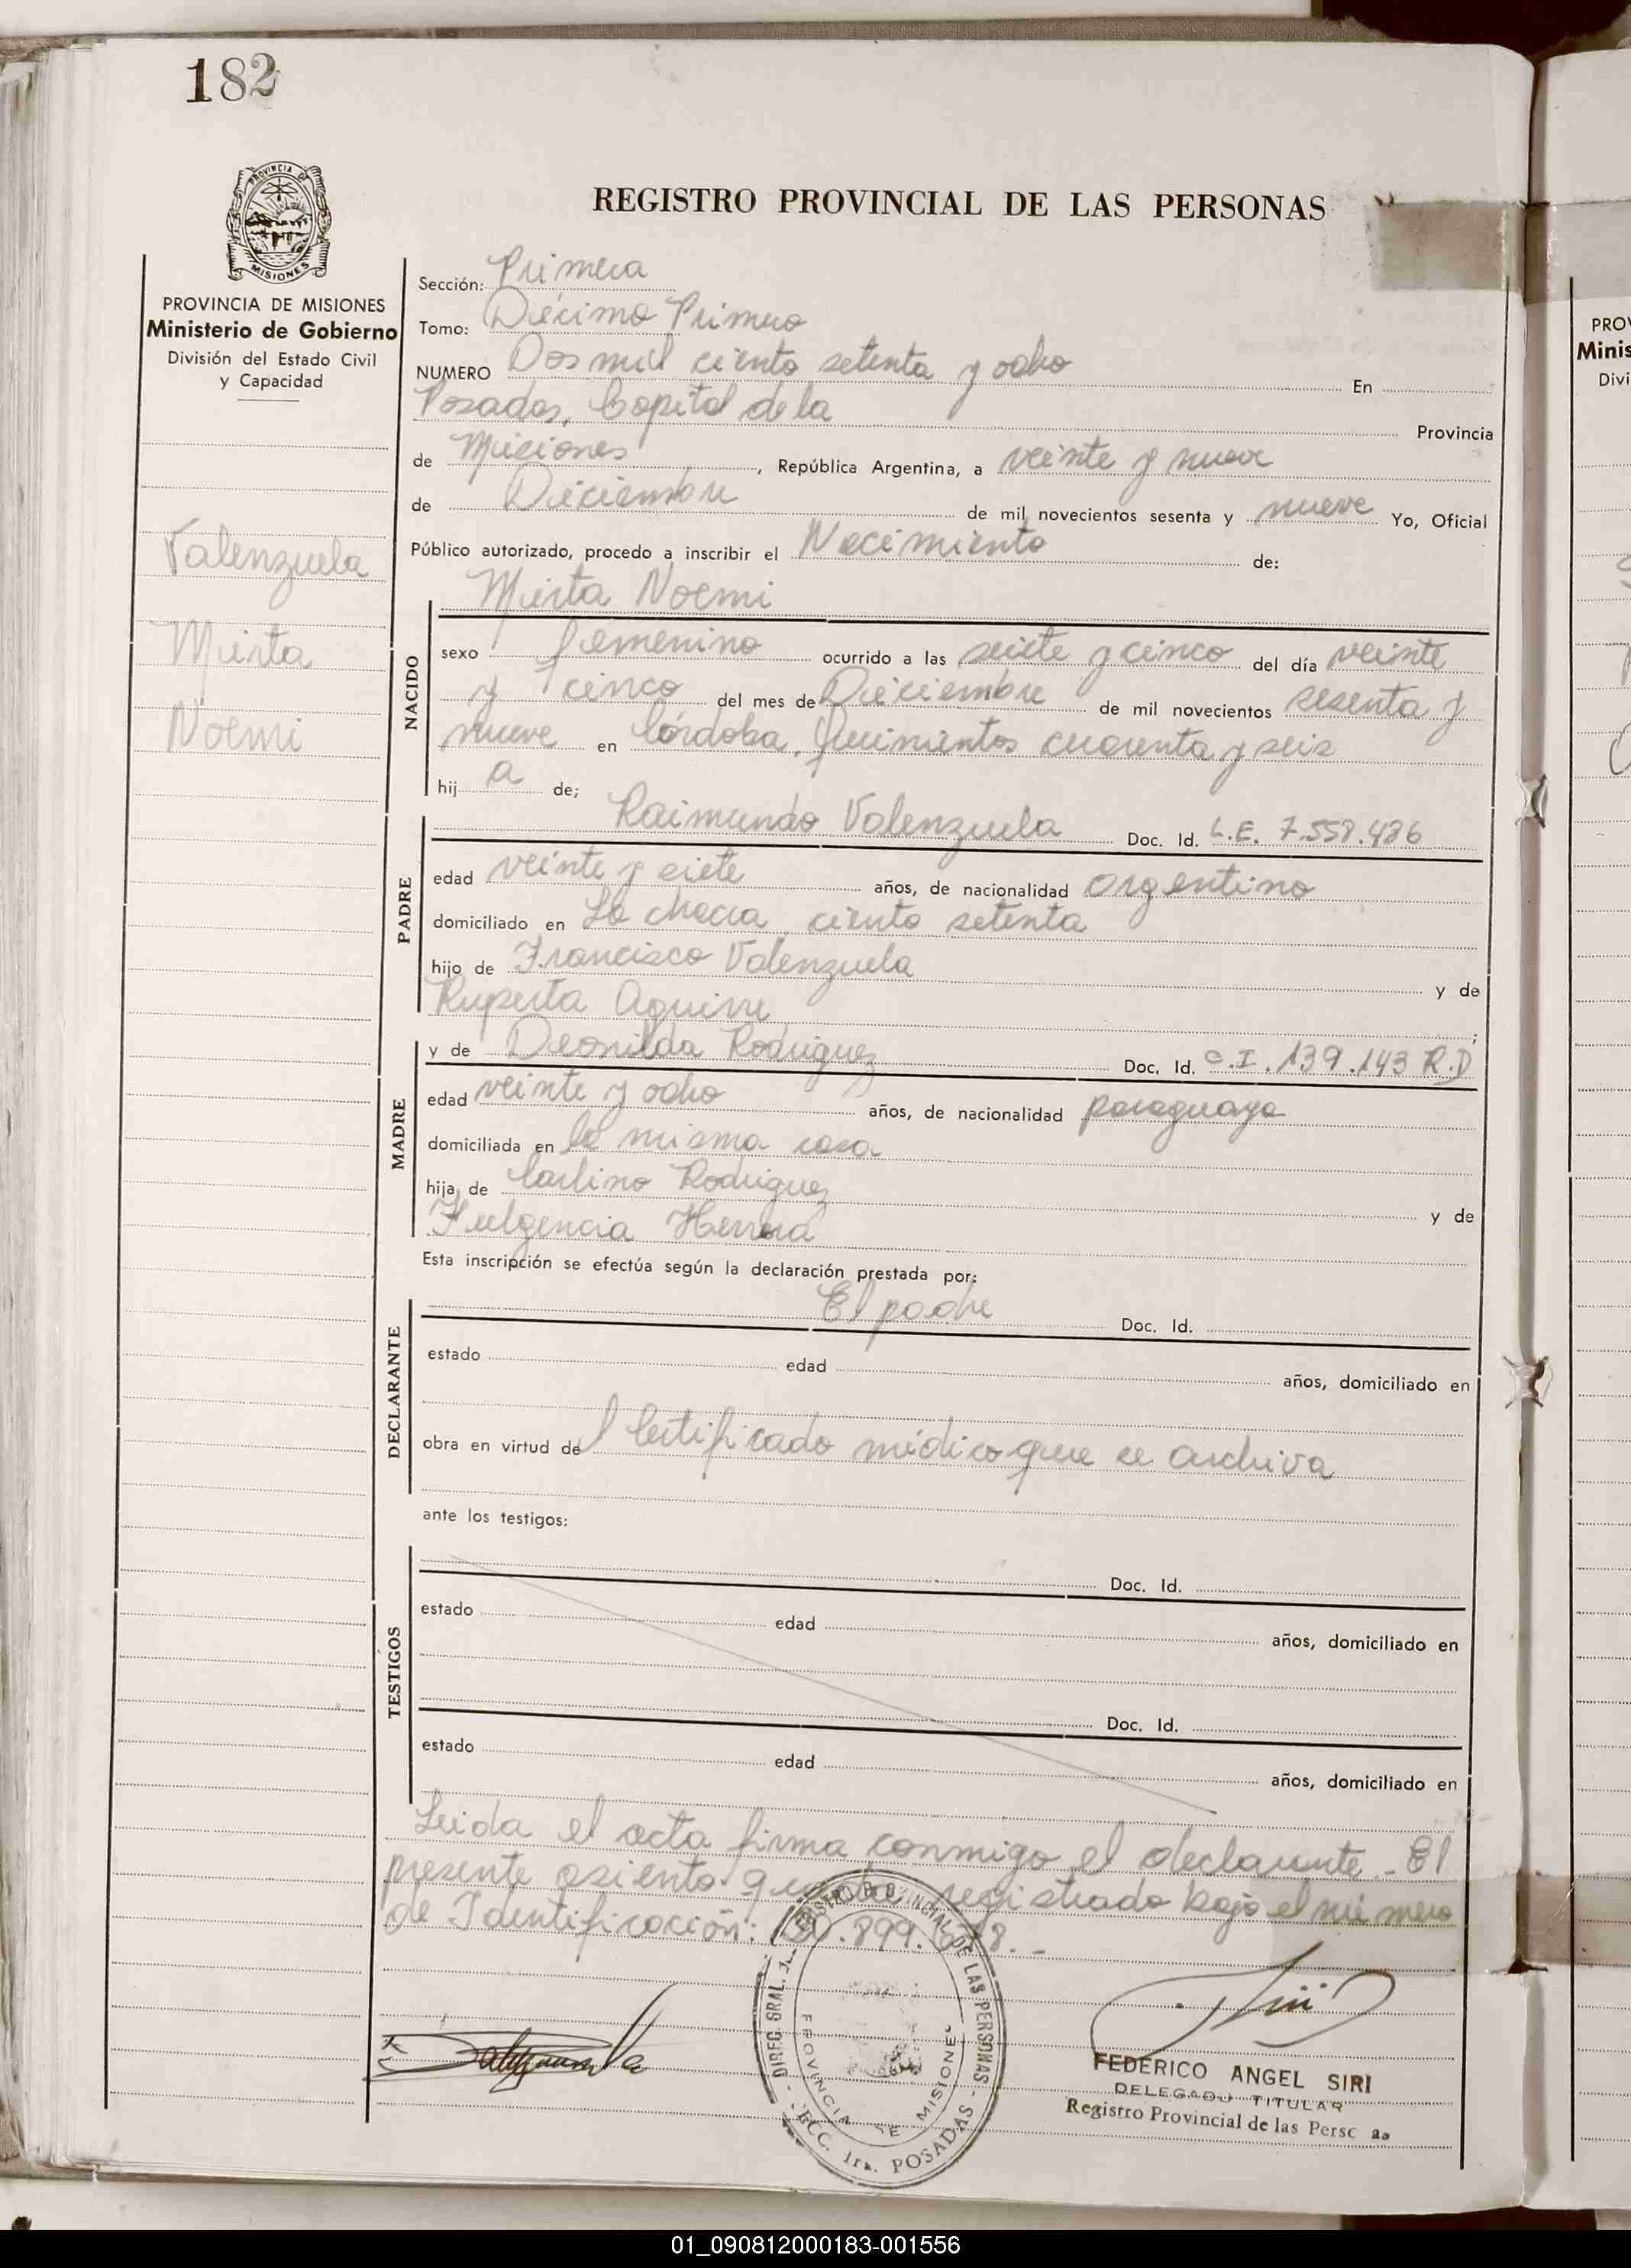 182
PROVINCIA DE
MISIONES
PROVINCIA DE MISIONES
Ministerio de Gobierno
División del Estado Civil
y Capacidad
Valenzuela
Mirta
Noemi
REGISTRO PROVINCIAL DE LAS PERSONAS
Sección: Primera
Tomo: Décimo Primero
NUMERO Dos mil ciento setenta y ocho En
Posadas, Capital de la Provincia
de Misiones, República Argentina, a veinte y nueve
de Diciembre de mil novecientos sesenta y nueve Yo, Oficial
Público autorizado, procedo a inscribir el Nacimiento de:
Mirta Noemi
NACIDO
sexo femenino ocurrido a las siete y cinco del día veinte
y cinco del mes de Diciembre de mil novecientos sesenta y
nueve en Córdoba, Quinientos cuarenta y seis
hija de;
Raimundo Valenzuela Doc. Id. L.E. 7.558.486
PADRE
edad veinte y siete años, de nacionalidad argentino
domiciliado en La chacra ciento setenta
hijo de Francisco Valenzuela y de
Ruperta Aguirre;
MADRE
y de Deonilda Rodriguez Doc. Id. C.I. 139.143 R.D
edad veinte y ocho años, de nacionalidad paraguaya
domiciliada en la misma casa
hija de Carlino Rodriguez y de
Fulgencia Herrera
Esta inscripción se efectúa según la declaración prestada por:
El padre Doc. Id.
DECLARANTE
estado edad años, domiciliado en
obra en virtud del Certificado médico que se archiva
ante los testigos:
TESTIGOS
Doc. Id.
estado edad años, domiciliado en
Doc. Id.
estado edad años, domiciliado en
Leida el acta firma conmigo el declarante.- El
presente asiento queda registrado bajo el número
de Identificación: 20.899.678.-
R Valenzuela
DIREC. GRAL. REGISTRO PROVINCIAL DE LAS PERSONAS
PROVINCIA DE MISIONES
SECC. 1ra. POSADAS
FEDERICO ANGEL SIRI
DELEGADO TITULAR
Registro Provincial de las Persc as
PROV
Minis
Divi
01_090812000183-001556